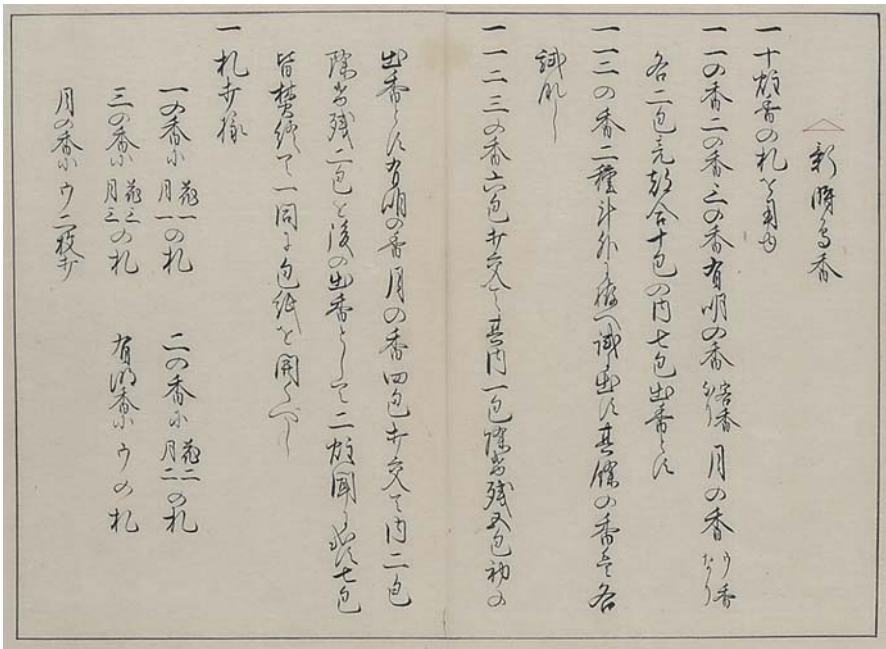 新時鳥香
一十炷香の札を用ゆ
一一の香二の香三の香有明の香客香なり月の香ウ香なり
各二包充都合十包の内七包出香とす
一一三の香二種計外に拵へ試出す其餘の香は各
試なし
一一二三の香六包打交て其内一包除出残五包初の
出香とす有明の香月の香四包打交て内二包
除出残二包を後の出香として二炷聞に出す七包
皆焚終て一同に包紙を開くべし
一札打様
一の香に花一月一の札 二の香に花二月二の札
三の香に花三月三の札 有明香にウの札
月の香にウ二枚打